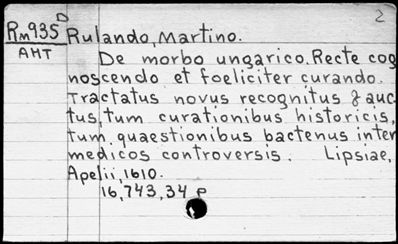 2
D
Rm935 Rulando, Martino.
AHT
De morbo ungarico. Recte cog
noscendo et foeliciter curando.
Tractatus novus recognitus & auc
tus, tum curationibus historicis,
tum quaestionibus bactenus inter
medicos controversis. Lipsiae,
Apelii, 1610.
16,743,34 p